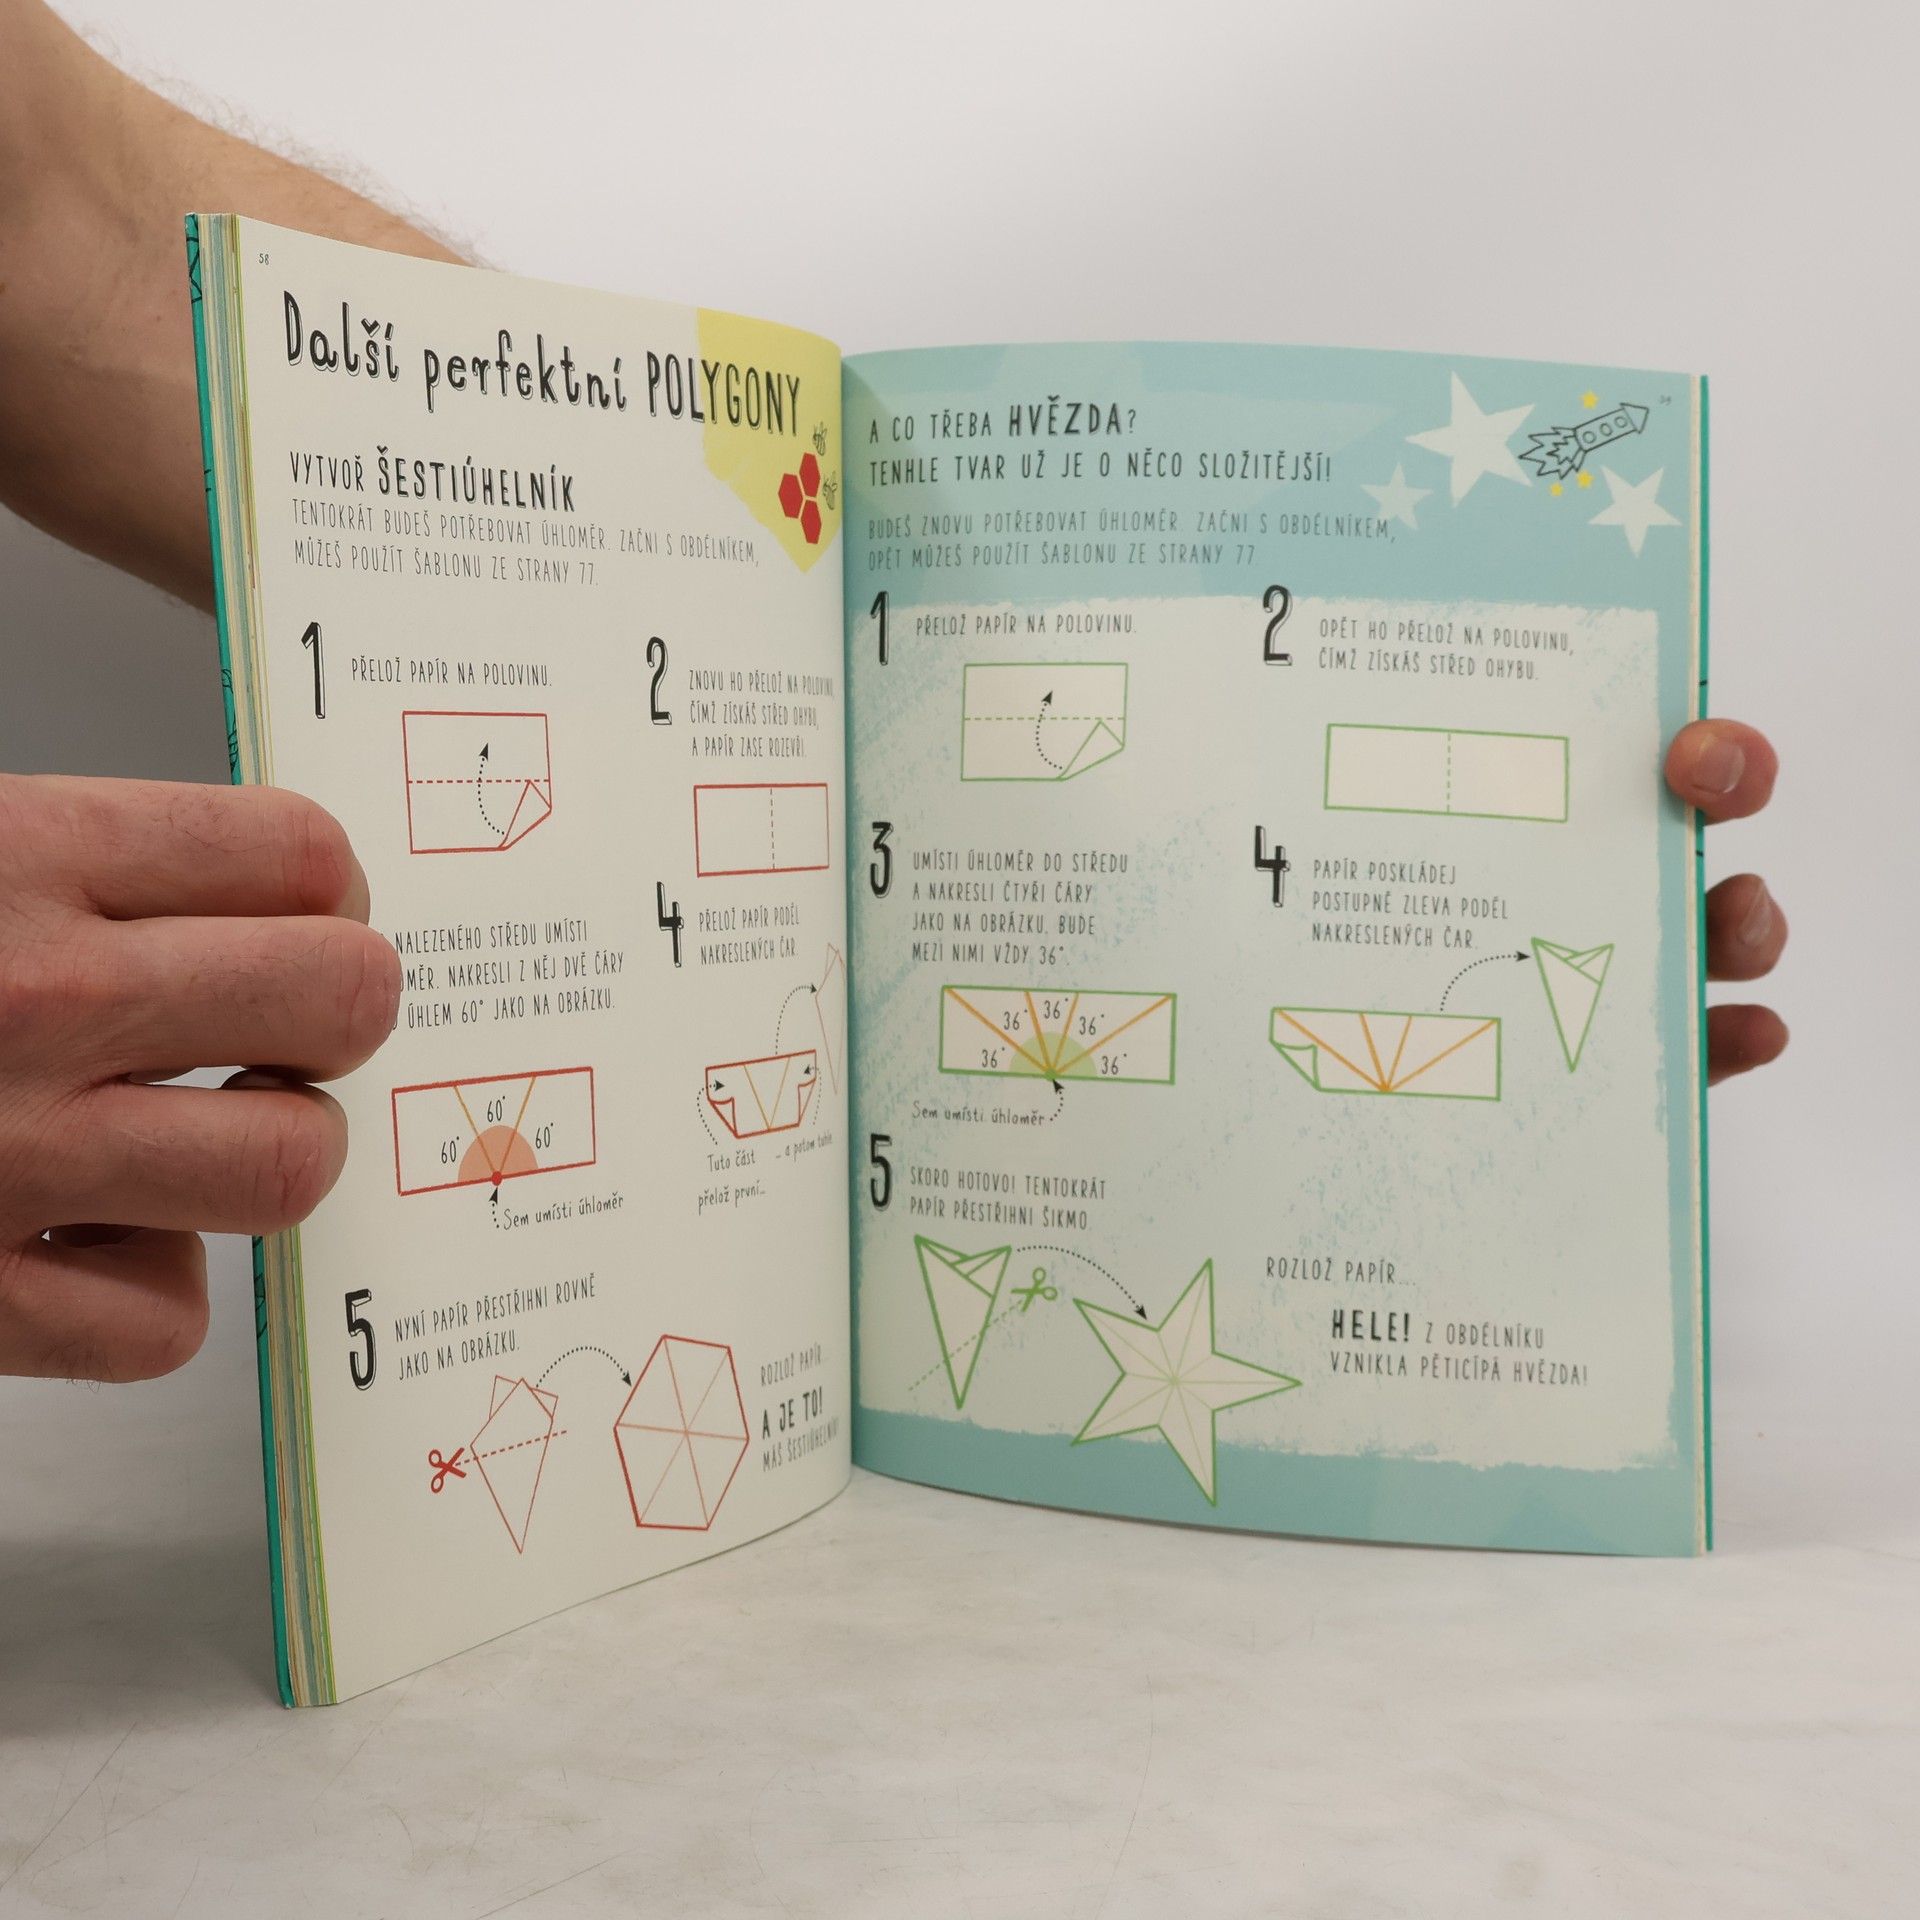 58
Další perfektní POLYGONY
VYTVOŘ ŠESTIÚHELNÍK
TENTOKRÁT BUDEŠ POTŘEBOVAT ÚHLOMĚR. ZAČNI S OBDÉLNÍKEM,
MŮŽEŠ POUŽÍT ŠABLONU ZE STRANY 77.
1
PŘELOŽ PAPÍR NA POLOVINU.
2
ZNOVU HO PŘELOŽ NA POLOVINU,
ČÍMŽ ZÍSKÁŠ STŘED OHYBU,
A PAPÍR ZASE ROZEVŘI.
NALEZENÉHO STŘEDU UMÍSTI
OMĚR. NAKRESLI Z NĚJ DVĚ ČÁRY
ÚHLEM 60° JAKO NA OBRÁZKU.
60°
60°
60°
Sem umísti úhloměr
4
PŘELOŽ PAPÍR PODÉL
NAKRESLENÝCH ČAR.
Tuto část
přelož první...
... a potom tuhle
5
NYNÍ PAPÍR PŘESTŘIHNI ROVNĚ
JAKO NA OBRÁZKU.
ROZLOŽ PAPÍR...
A JE TO!
MÁŠ ŠESTIÚHELNÍK!
59
A CO TŘEBA HVĚZDA?
TENHLE TVAR UŽ JE O NĚCO SLOŽITĚJŠÍ!
BUDEŠ ZNOVU POTŘEBOVAT ÚHLOMĚR. ZAČNI S OBDÉLNÍKEM,
OPĚT MŮŽEŠ POUŽÍT ŠABLONU ZE STRANY 77.
1
PŘELOŽ PAPÍR NA POLOVINU.
2
OPĚT HO PŘELOŽ NA POLOVINU,
ČÍMŽ ZÍSKÁŠ STŘED OHYBU.
3
UMÍSTI ÚHLOMĚR DO STŘEDU
A NAKRESLI ČTYŘI ČÁRY
JAKO NA OBRÁZKU. BUDE
MEZI NIMI VŽDY 36°.
36°
36°
36°
36°
36°
Sem umísti úhloměr
4
PAPÍR POSKLÁDEJ
POSTUPNĚ ZLEVA PODÉL
NAKRESLENÝCH ČAR.
5
SKORO HOTOVO! TENTOKRÁT
PAPÍR PŘESTŘIHNI ŠIKMO.
ROZLOŽ PAPÍR...
HELE! Z OBDÉLNÍKU
VZNIKLA PĚTICÍPÁ HVĚZDA!